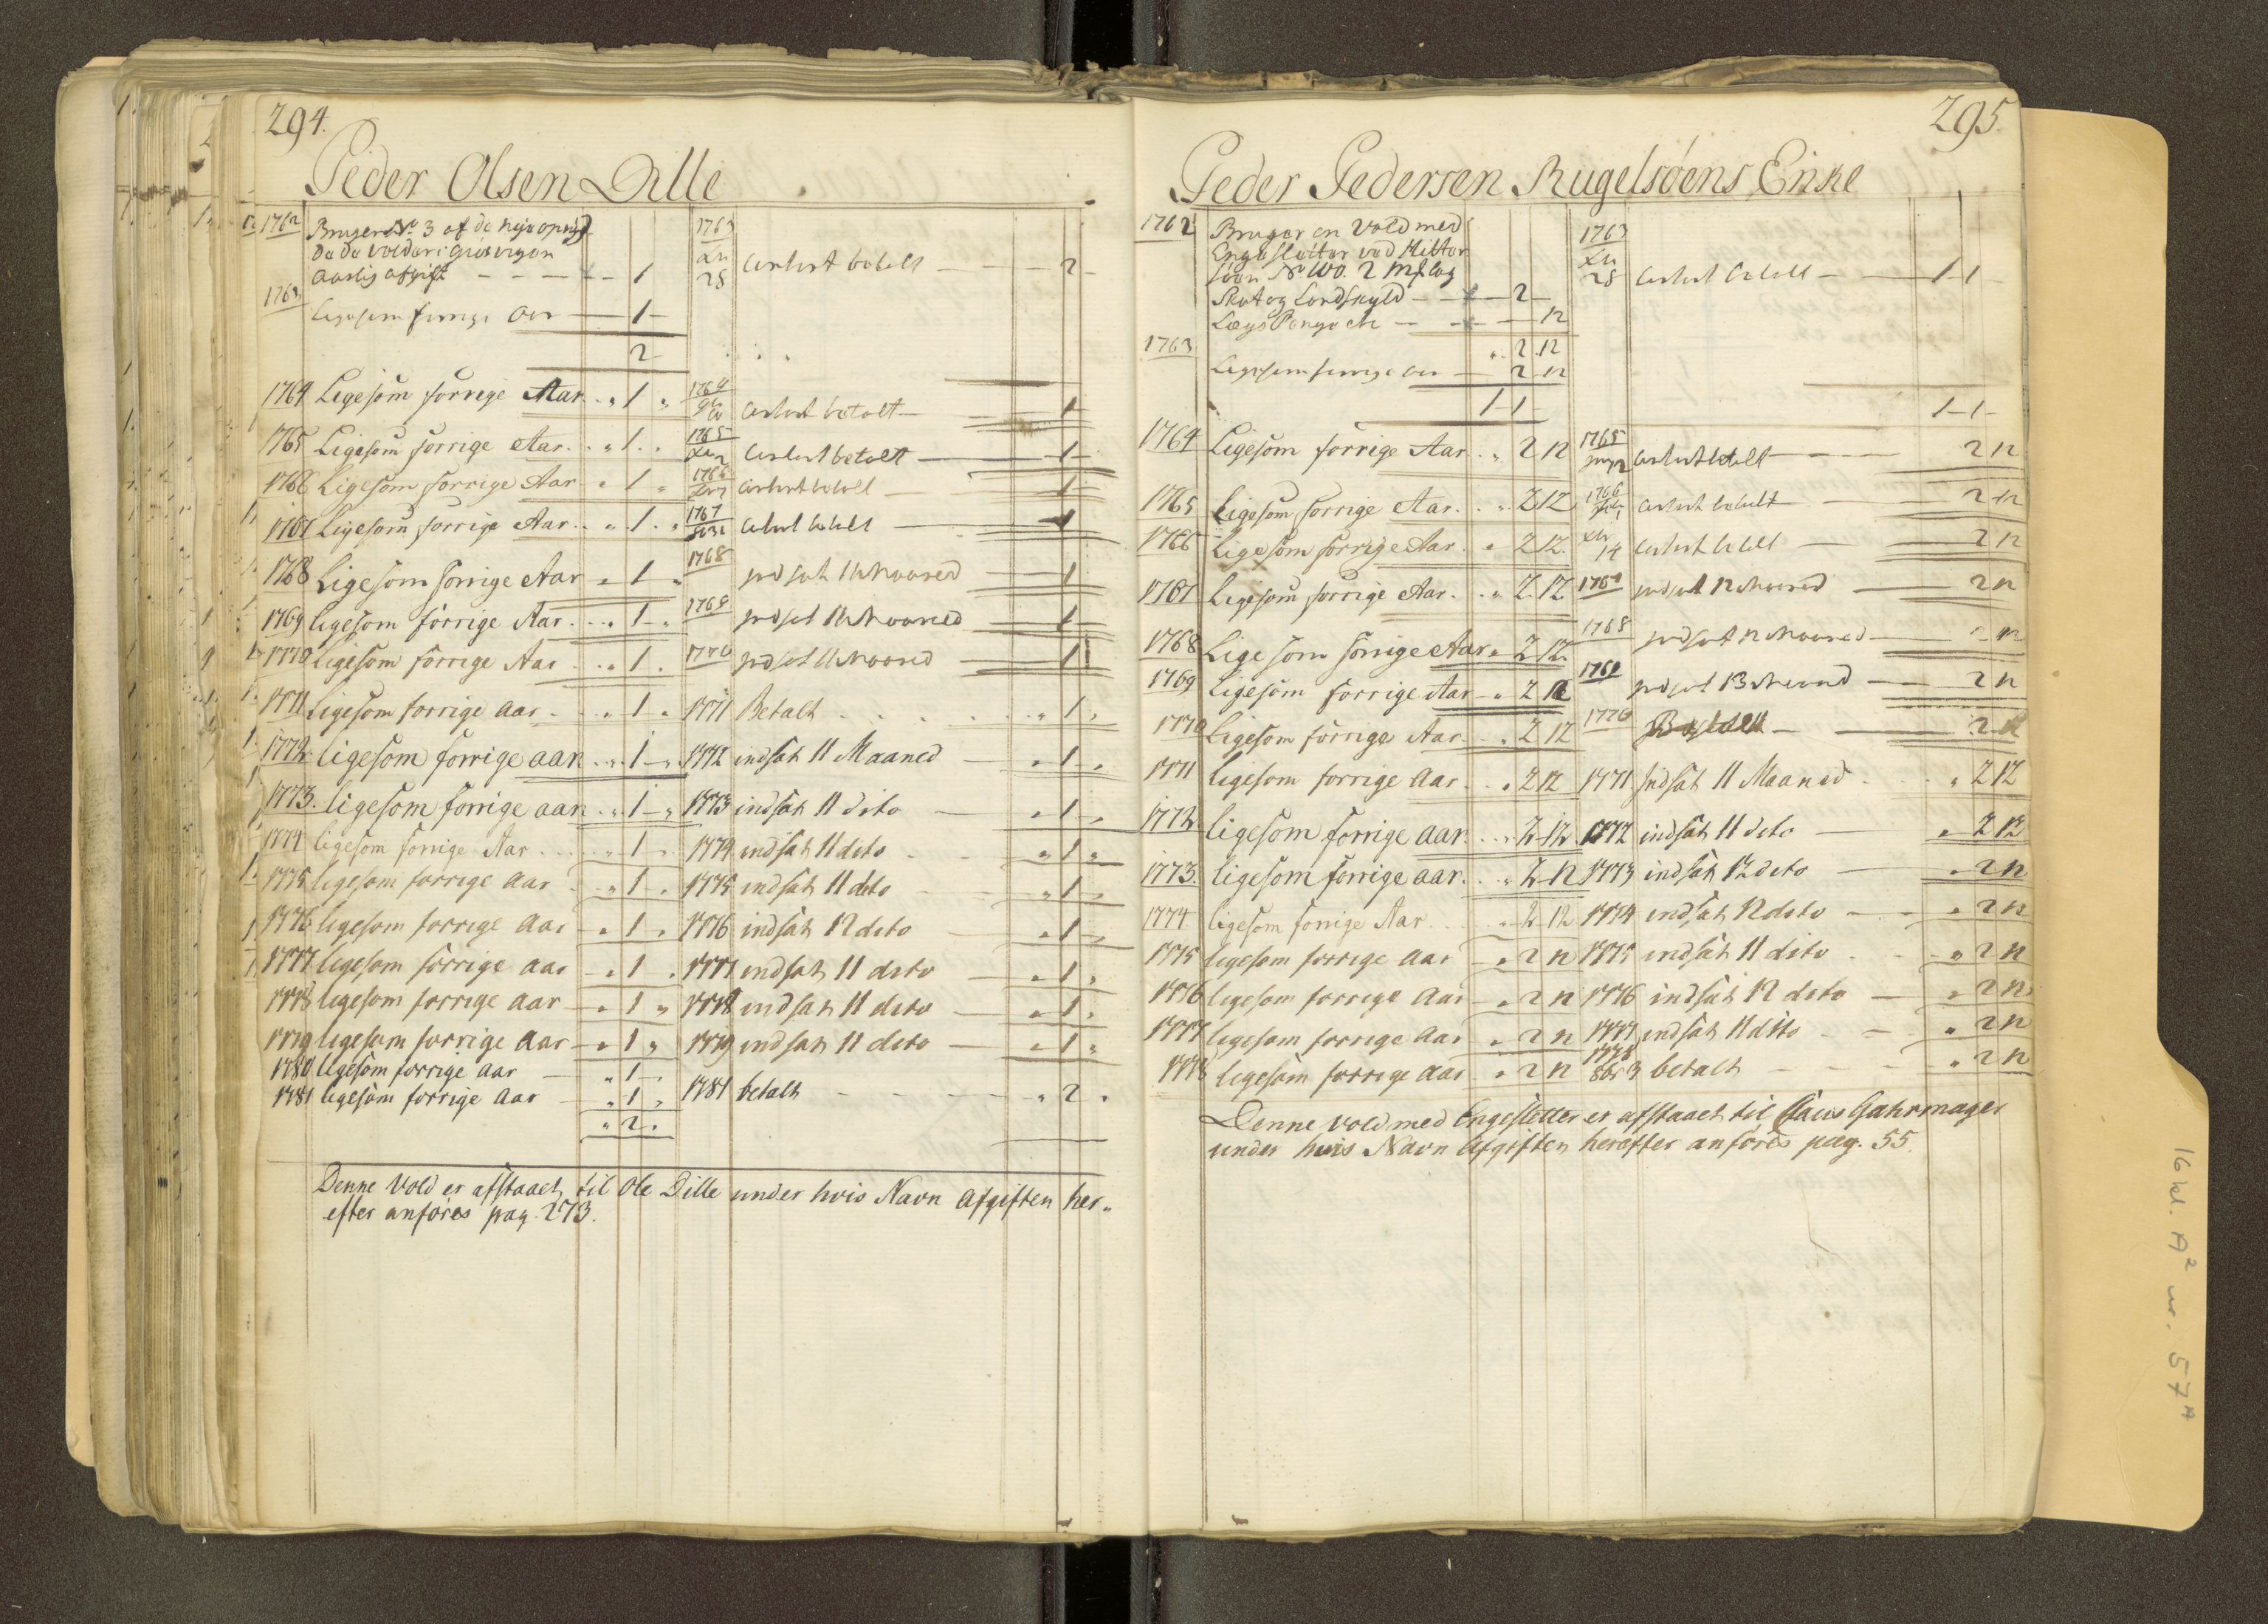 294.
Peder Olsen Dille
1762 Bruger No. 3 af de nye opryd
da de Volder i
Aarlig afgift 1
1763 Ligesom forrige Aar 1
2
1764 Ligesom forrige Aar " 1 "
1765 Ligesom forrige Aar " 1 "
1766 Ligesom forrige Aar " 1 "
1767 Ligesom forrige Aar " 1 "
1768 Ligesom forrige Aar " 1 "
1769 ligesom forrige Aar " 1 "
1770 ligesom forrige Aar " 1 "
1771 ligesom forrige Aar " 1 "
1772 ligesom forrige aar " 1 "
1773. ligesom forrige aar " 1 "
1774 ligesom forrige Aar " 1 "
1775 ligesom forrige Aar " 1 "
1776 ligesom forrige Aar " 1 "
1777 ligesom forrige Aar " 1 "
1778 ligesom forrige Aar " 1 "
1779 ligesom forrige Aar " 1 "
1780 ligesom forrige Aar " 1 "
1781 ligesom forrige Aar " 1 "
" 2 "
1763
28 betalt 2
1764 betalt 1
1765 betalt 1
1766 betalt 1
1767 betalt 1
1768 indsat 11 Maaned 1
1769 indsat 11 Maaned 1
1770 indsat 11 Maaned 1
1771 Betalt " 1 "
1772 indsat 11 Maaned " 1 "
1773 indsat 11 dito " 1 "
1774 indsat 11 dito " 1 "
1775 indsat 11 dito " 1 "
1776 indsat 12 dito " 1 "
1777 indsat 11 dito " 1 "
1778 indsat 11 dito " 1 "
1779 indsat 11 dito " 1 "
1781 betalt " 2 "
Denne Vold er afstaaet til Ole Dille under hvis Navn Afgiften her„
efter anføres pag. 273.
295.
Peder Pedersen Rugelsøens Enke
1762 Bruger en Vold med
Engesletter ved Hitter
søen No 100. 2
Skat og Landskyld 2
Lægs Penge 12
" 2 12
1763 Ligesom forrige Aar 2 12
1 1
1764 Ligesom forrige Aar " 2 12
1765 Ligesom forrige Aar " 2 12
1766 Ligesom forrige Aar " 2 12
1767 Ligesom forrige Aar " 2 12
1768 Ligesom forrige Aar " 2 12
1769 Ligesom forrige Aar " 2 12
1770 Ligesom forrige Aar " 2 12
1771 ligesom forrige Aar " 2 12
1772 ligesom forrige aar " 2 12
1773. ligesom forrige aar " 2 12
1774 ligesom forrige Aar " 2 12
1775 ligesom forrige Aar " 2 12
1776 ligesom forrige Aar " 2 12
1777 ligesom forrige Aar " 2 12
1778 ligesom forrige Aar " 2 12
1763
28 betalt 1 1
1 1
1765 betalt 2 12
1766 betalt 2 12
14 betalt 2 12
1767 indsat 12 Maaned 2 12
1768 indsat 12 Maaned 12
1769 indsat 13 Maaned 2 12
1770 2 12
1771 Indsat 11 Maaned " 2 12
1772 indsat 11 dito " 2 12
1773 indsat 12 dito " 2 12
1774 indsat 12 dito " 2 12
1775 indsat 11 dito " 2 12
1776 indsat 12 dito " 2 12
1777 indsat 11 dito " 2 12
1778
8br 3 betalt " 2 12
Denne Vold med Engesletter er afstaaet til Claus Gahrmager
under hvis Navn Afgiften herefter anføres pag. 55.
16 kl. A2 nr. 57A